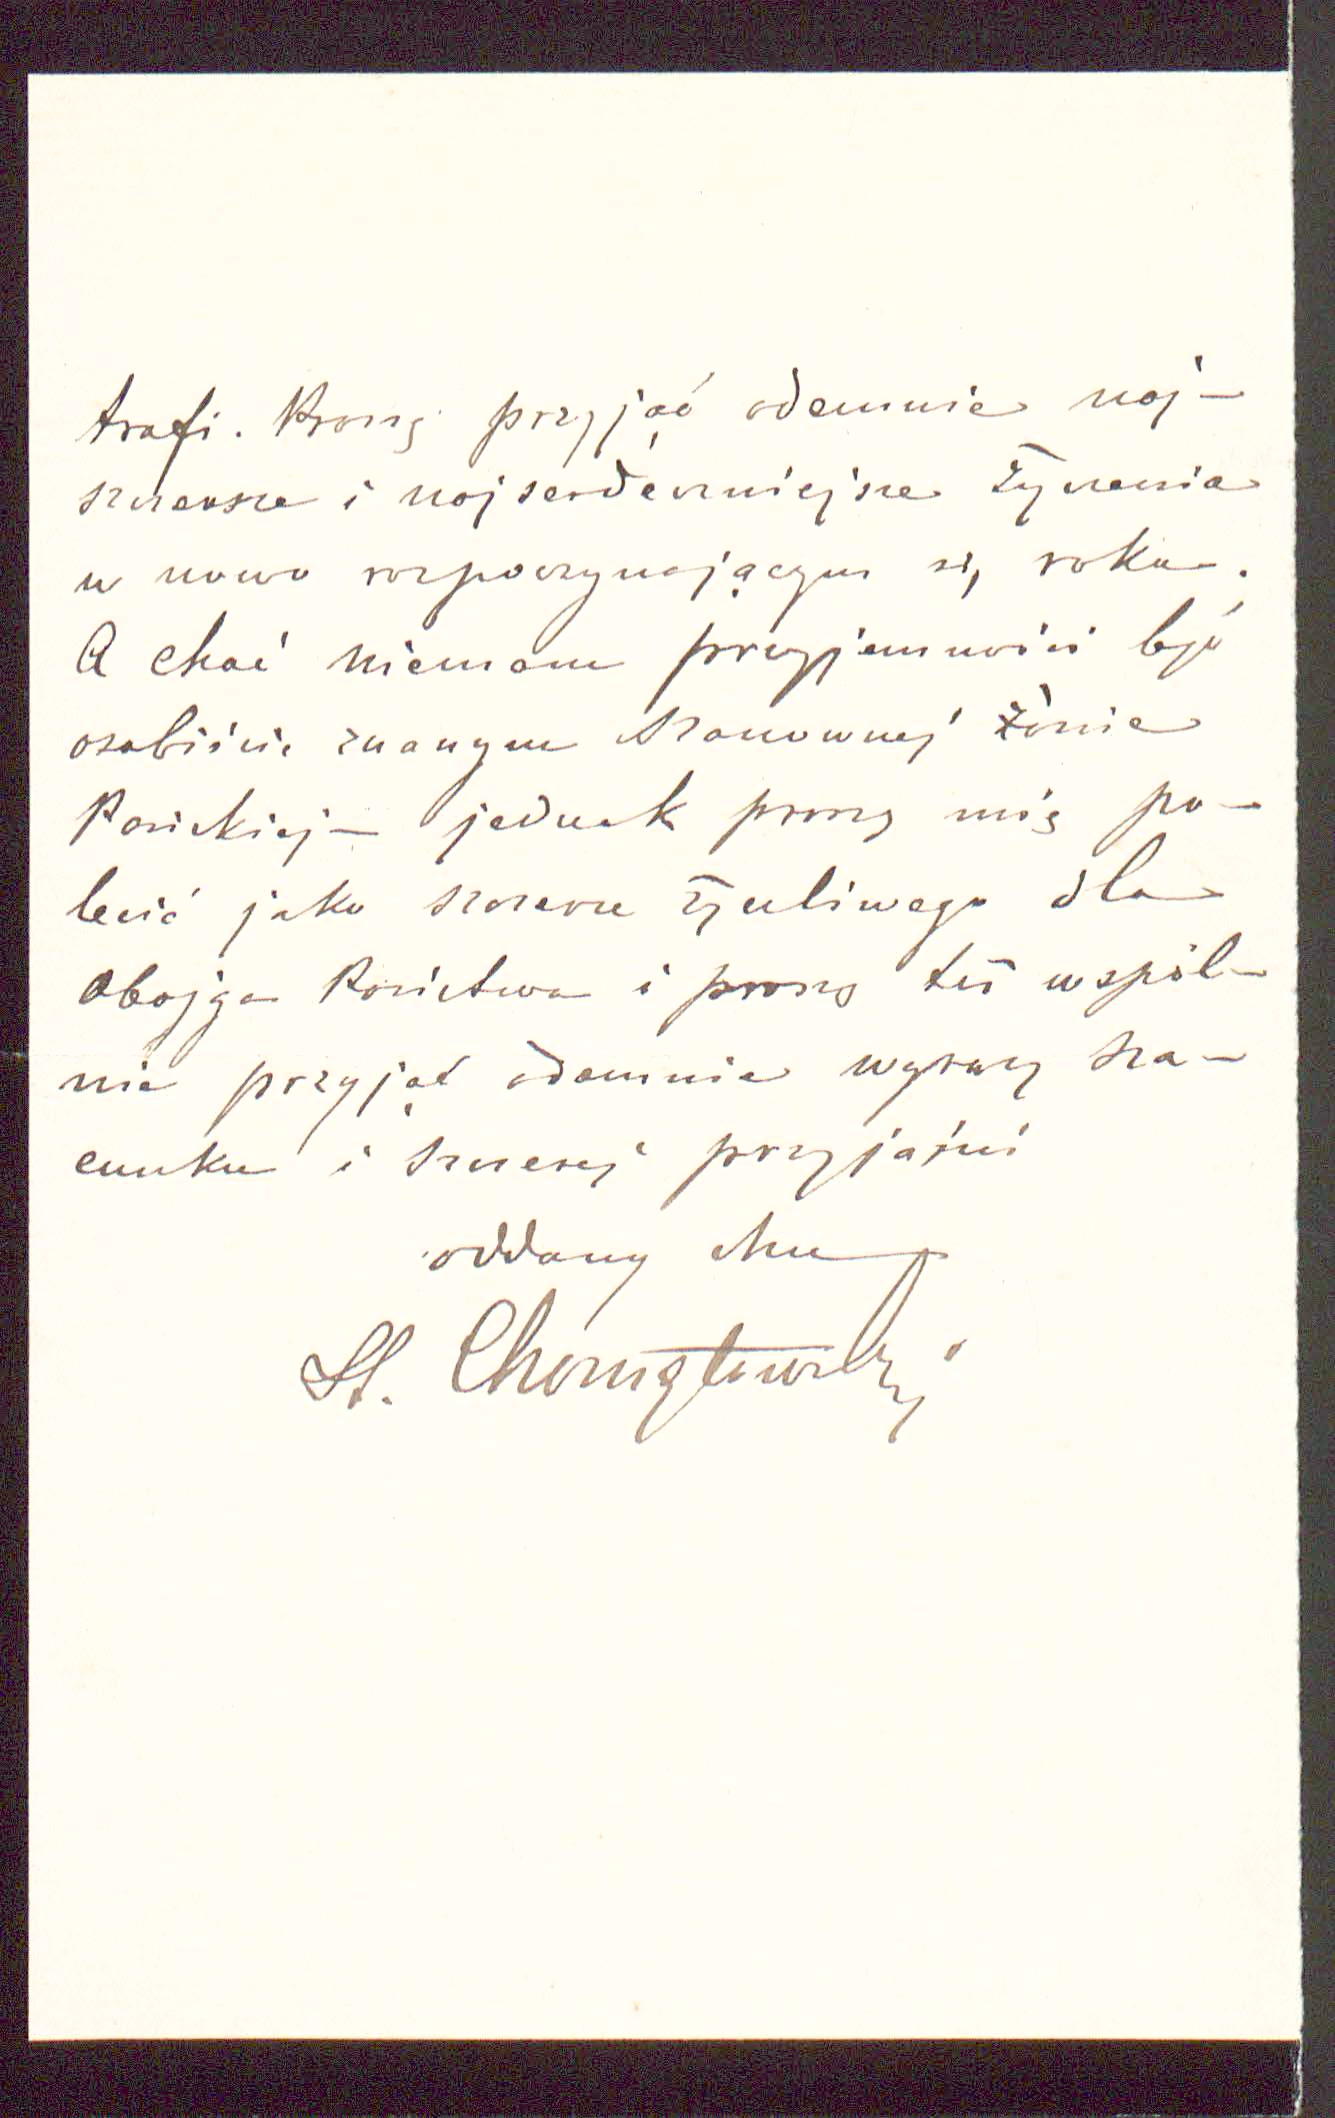 trafi. Proszę przyjąć odemnie naj-
szczersze i najserdeczniejsze życzenia
w nowo rozpoczynającym się roku.
A choć niemam przyjemności być
osobiście znanym Szanownej Żonie
Pańskiej – jednak proszę mię po-
lecić jako szczerze życzliwego dla
Obojga Państwa i proszę też wspól-
nie przyjąć odemnie wyrazy sza-
cunku i szczerej przyjaźni
oddany
St.